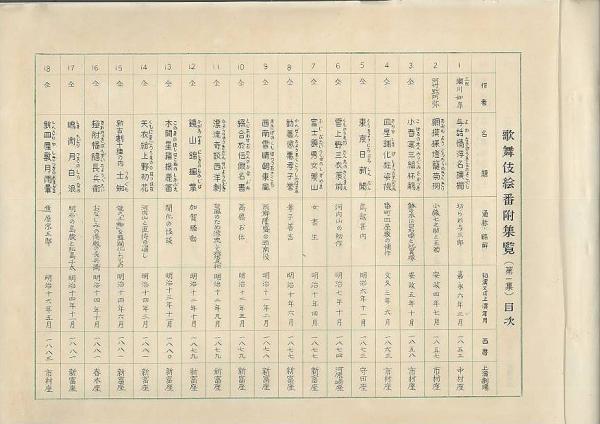 歌舞伎絵番附集覧（第一集）目次
作者 名題 通称・略解 初演又は上演年月 西暦 上演劇場
1 瀬川如皐 与話情浮名横櫛 切られ与三郎 嘉永六年三月 一八五三 中村座
2 河竹黙阿弥 網模様燈籠菊桐 小猿七之助と玉菊 安政四年七月 一八五七 市村座
3 仝 小春宴三組杯觴 安政五年十月 一八五八 市村座
4 仝 皿屋舗化粧姿鏡 文久三年六月 一八六三 守田座
5 仝 東京日新聞 鳥越甚内 明治六年十一月 一八七三 守田座
6 仝 雲上野三衣策前 河内山の初作 明治七年十月 一八七四 河原崎座
7 仝 富士額男女繁山 女書生 明治十年四月 一八七七 新富座
8 仝 勧善懲悪孝子誉 孝子善吉 明治十年六月 一八七七 新富座
9 仝 西南雲晴朝東風 西郷隆盛の西南役 明治十一年二月 一八七八 新富座
10 仝 綴合於伝仮名書 高橋お伝 明治十二年五月 一八七九 新富座
11 仝 漂流奇談西洋劇 明治十二年九月 一八七九 新富座
12 仝 鏡山錦楓葉 加賀騒動 明治十二年十月 一八七九 新富座
13 仝 木間星箱根鹿笛 開化の怪談 明治十三年十一月 一八八〇 新富座
14 仝 天衣紛上野初花 河内山と直侍の通し 明治十四年三月 一八八一 新富座
15 仝 新古劇十種の内 土蜘 明治十四年六月 一八八一 新富座
16 仝 極附幡随長兵衛 明治十四年十月 一八八一 春木座
17 仝 島鵆月白浪 明石の島蔵と松島千太 明治十四年十一月 一八八一 新富座
18 仝 新皿屋舗月雨暈 魚屋宗五郎 明治十六年五月 一八八三 市村座